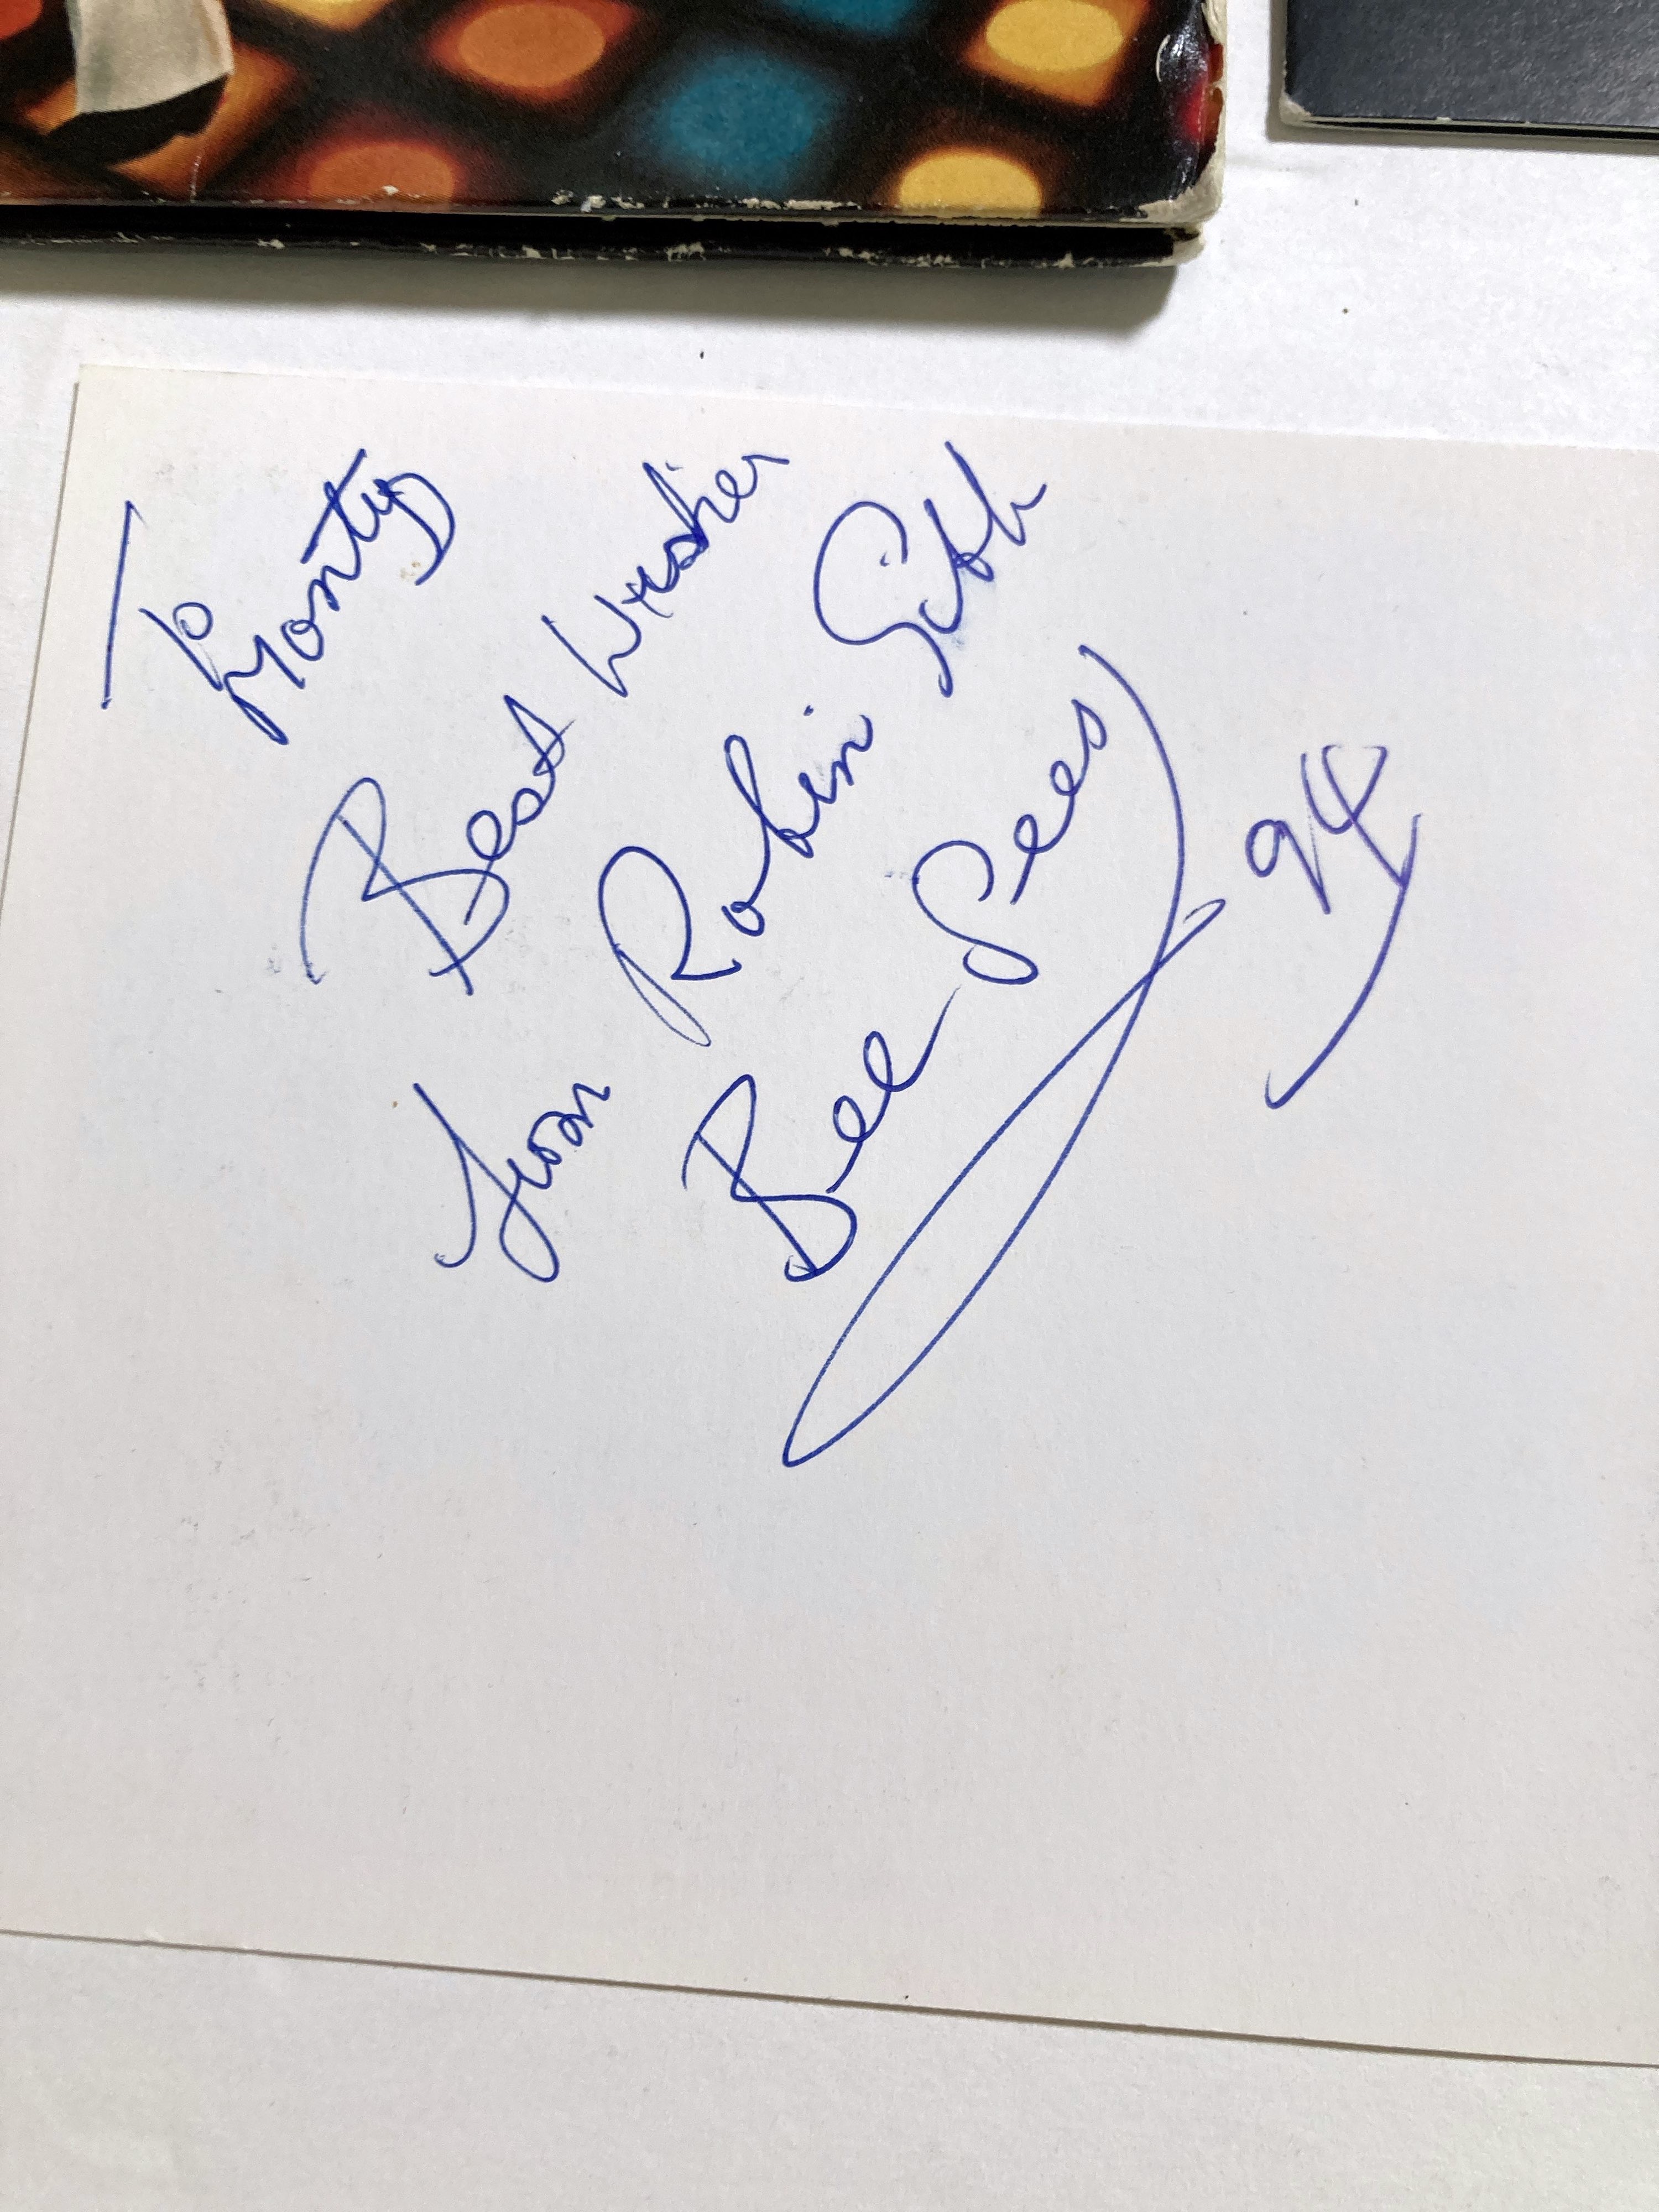 To
Monty
Best Wishes
from Robin Gibb
Bee Gees
94